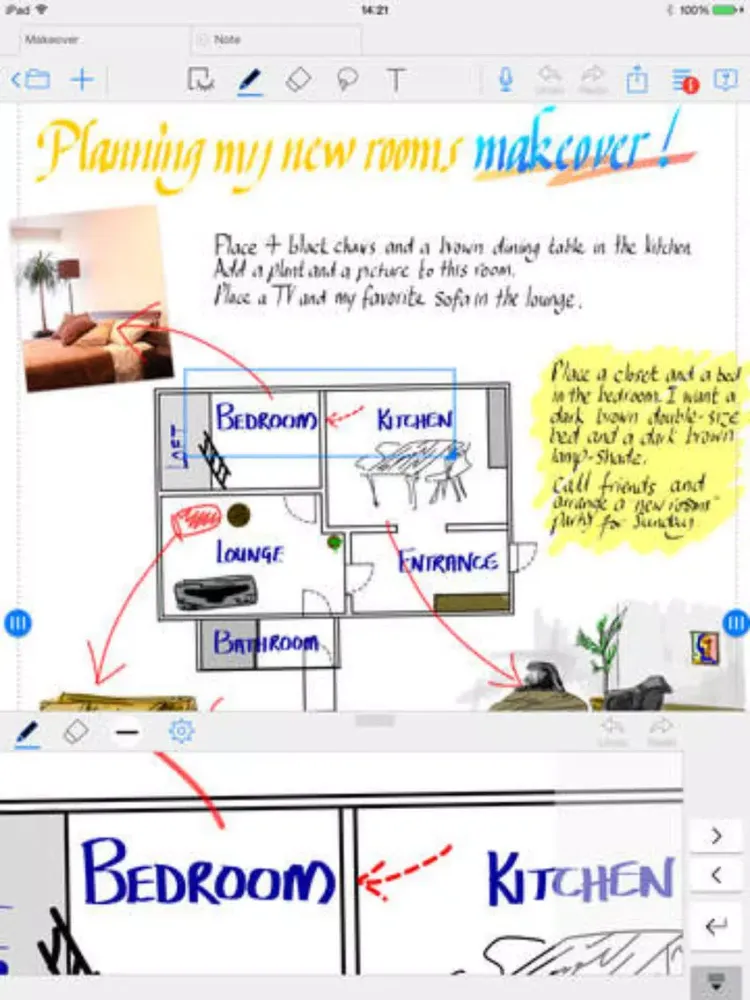 iPad 14:21 100%
Makeover Note
T
Undo Redo
Planning my new rooms makeover!
Place 4 black chairs and a brown dining table in the kitchen
Add a plant and a picture to this room.
Place a TV and my favorite sofa in the lounge.
Place a closet and a bed
in the bedroom. I want a
dark brown double-size
bed and a dark brown
lamp-shade.
Call friends and
arrange a new rooms
party for Sunday.
BEDROOM KITCHEN
LOFT
LOUNGE ENTRANCE
BATHROOM
Undo Redo
BEDROOM KITCHEN